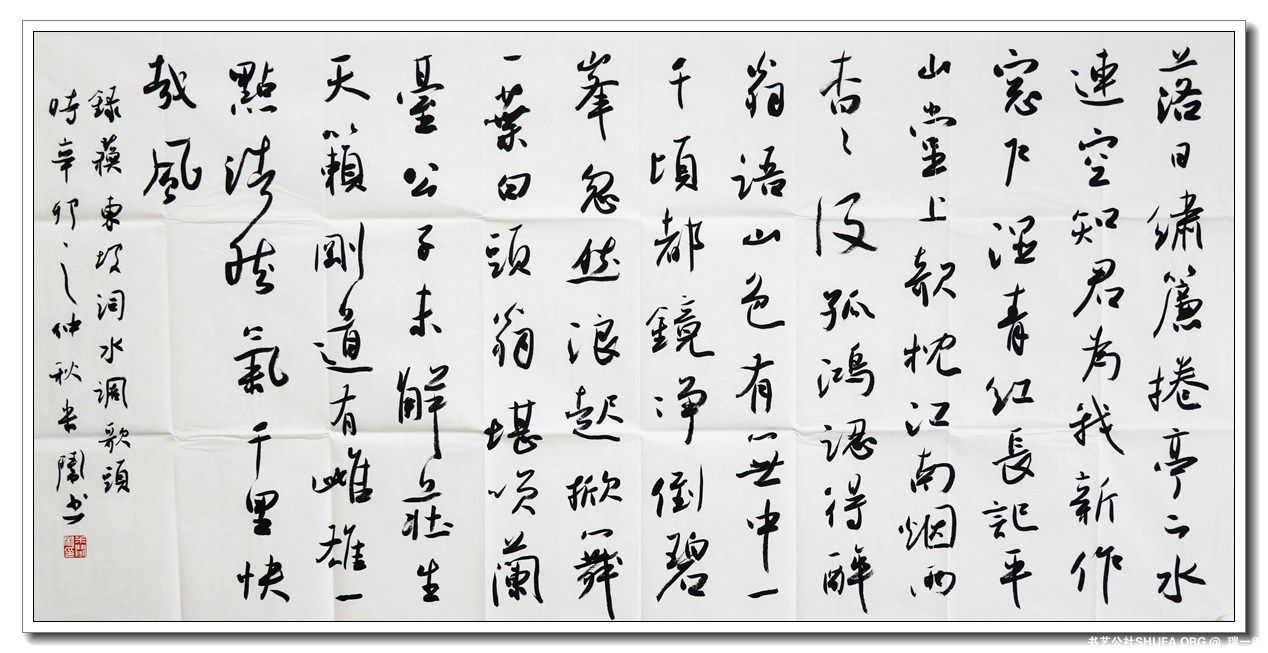 落日繡簾捲亭下水
連空知君為我新作
窓戶溼青紅長記平
山堂上欹枕江南烟雨
杳〻沒孤鴻認得醉
翁語山色有無中一
千頃都鏡淨倒碧
峯忽然浪起掀舞
一葉白頭翁堪笑蘭
臺公子未解莊生
天籟剛道有雌雄一
點浩然氣千里快
哉風
錄蘇東坡詞水調歌頭
時辛卯之仲秋書
书艺公社SHUFA.ORG @ 瑞一